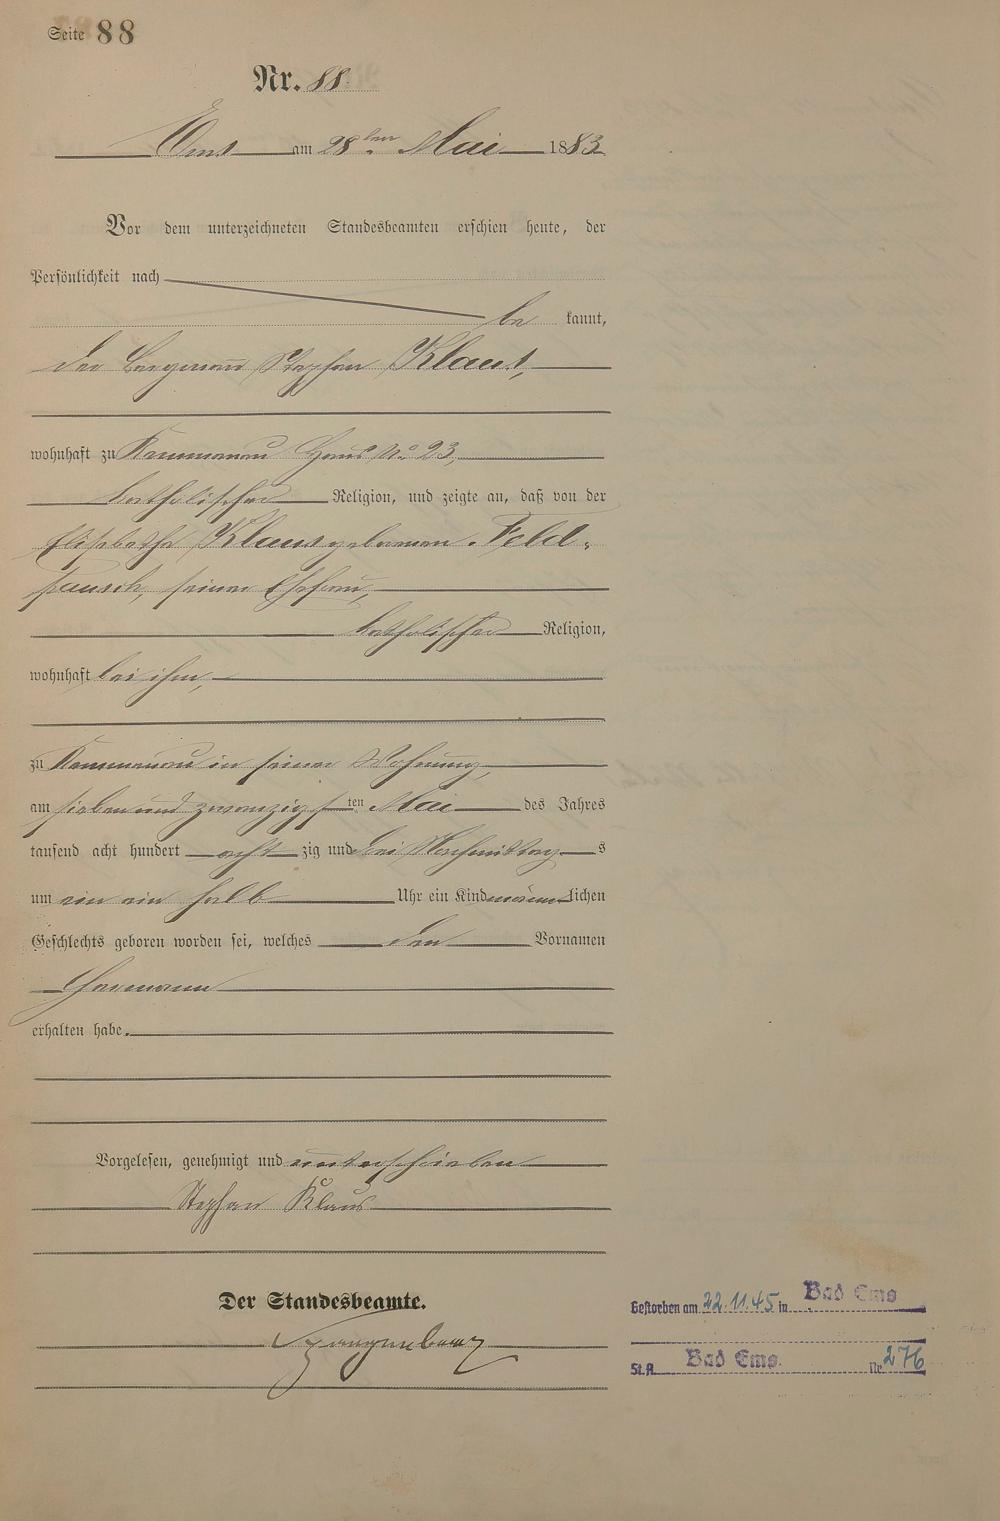 Seite 88
Nr. 88
Ems am 28ten Mai 1883
Vor dem unterzeichneten Standesbeamten erschien heute, der
Persönlichkeit nach
be kannt,
der Bergmann Stephan Klaus,
wohnhaft zu Kemmenau Haus No 23,
katholischer Religion, und zeigte an, daß von der
Elisabethe Klaus geborenen Feld-
pausch, seiner Ehefrau,
katholischer Religion,
wohnhaft bei ihm,
zu Kemmenau in seiner Wohnung,
am sieben und zwanzigsten Mai des Jahres
tausend acht hundert acht zig und drei Nachmittag s
um ein ein halb Uhr ein Kind männlichen
Geschlechts geboren worden sei, welches den Vornamen
Hermann
erhalten habe.
Vorgelesen, genehmigt und unterschrieben
Stephan Klaus
Der Standesbeamte.
Gestorben am 22.11.45 in Bad Ems
St.A. Bad Ems. Nr. 276